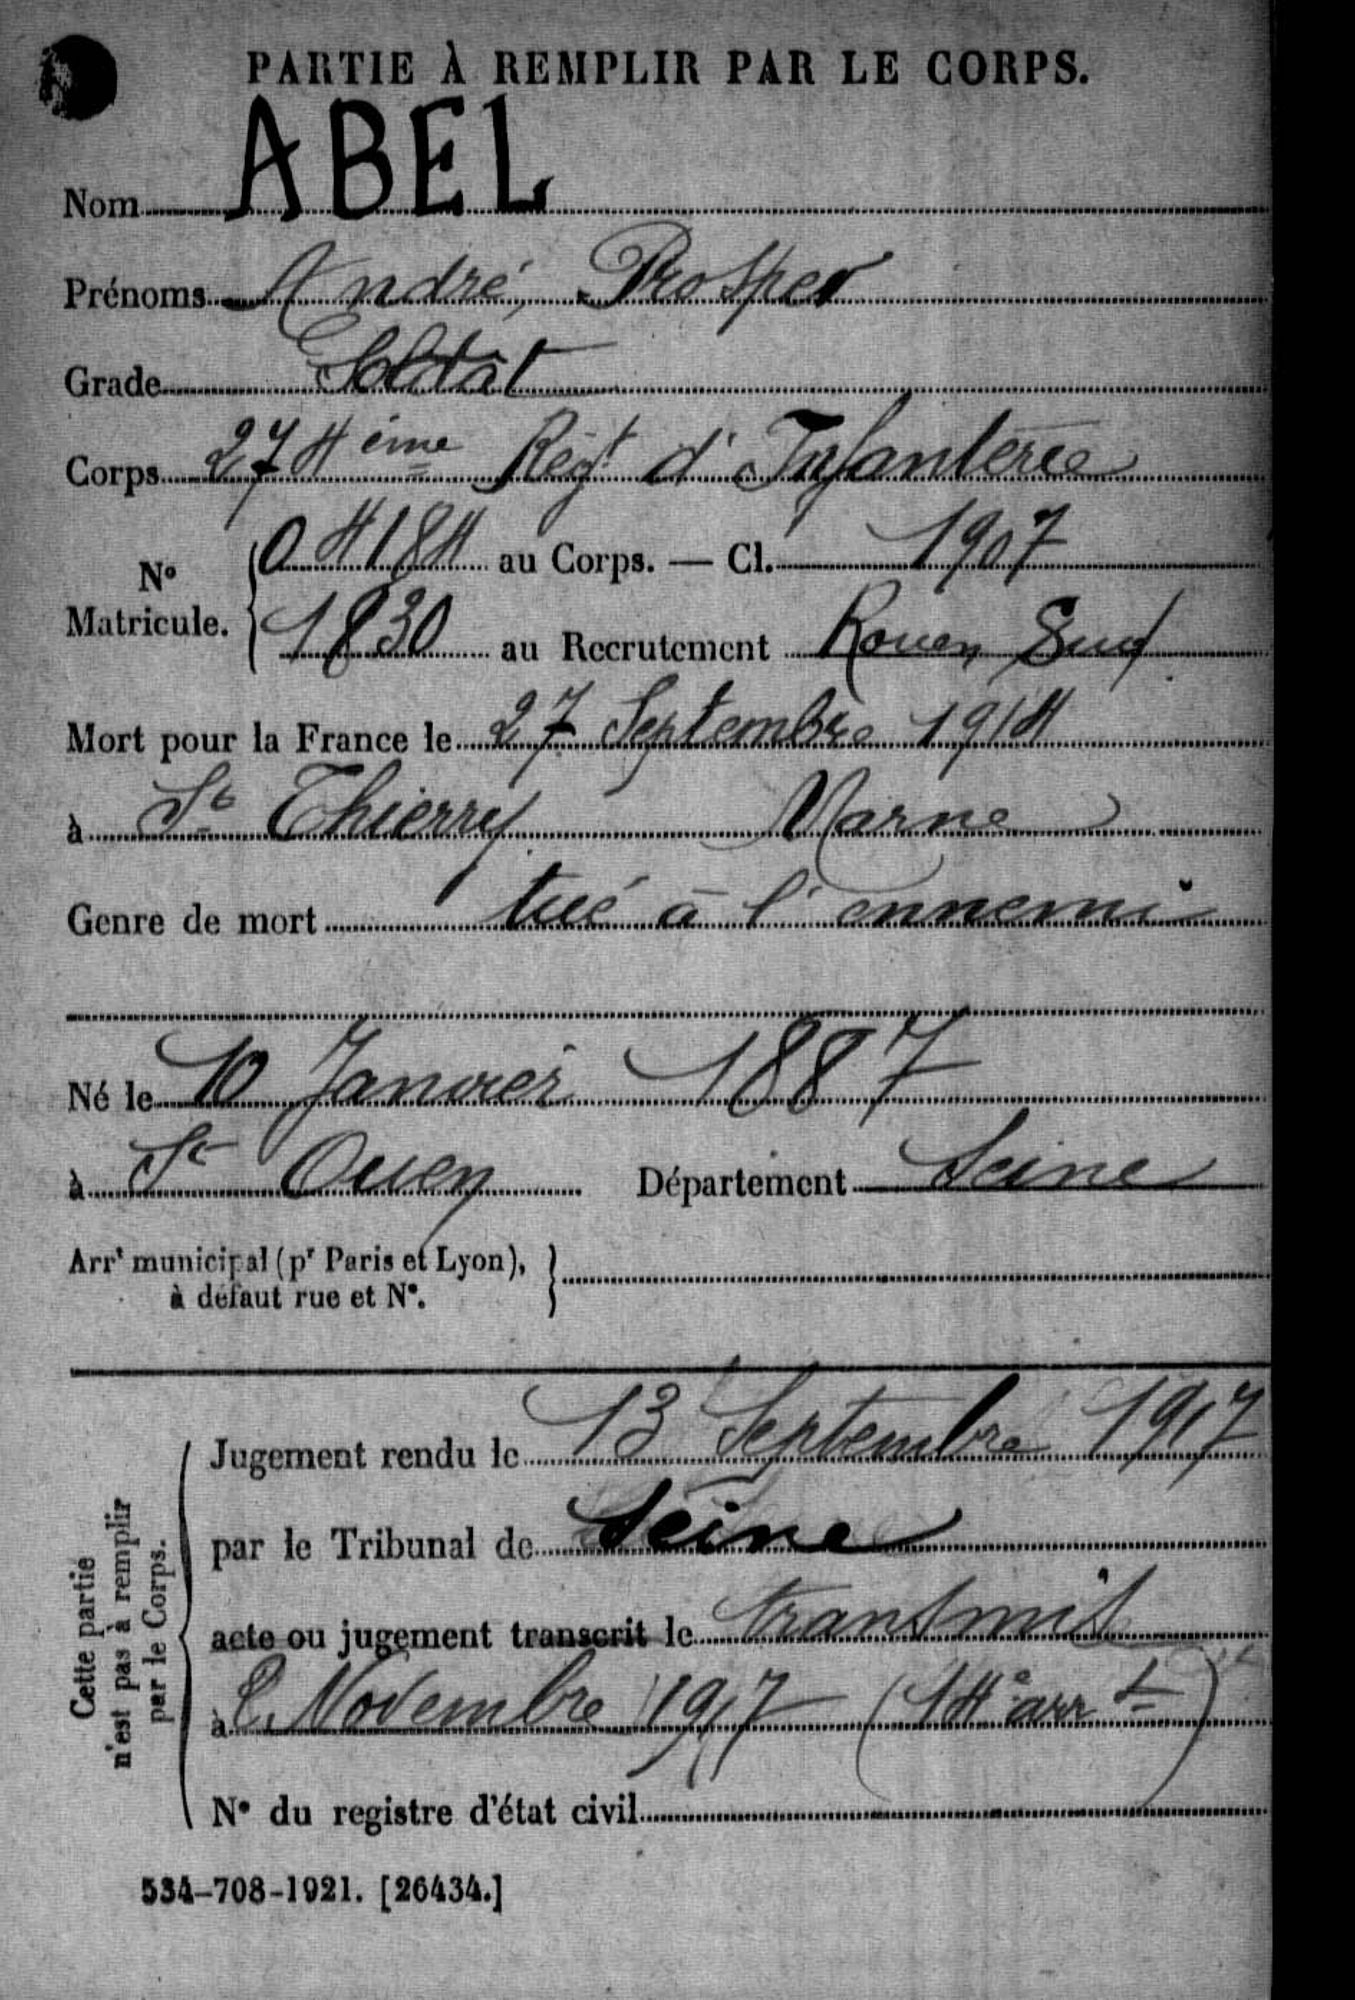 PARTIE À REMPLIR PAR LE CORPS.
Nom ABEL
Prénoms André, Prosper
Grade Soldat
Corps 274ème Régt d'Infanterie
N° Matricule. 04184 au Corps. — Cl. 1907
1830 au Recrutement Rouen Sud
Mort pour la France le 27 Septembre 1914
à St Thierry Marne
Genre de mort tué à l'ennemi
Né le 10 Janvier 1887
à St Ouen Département Seine
Arrt municipal (pr Paris et Lyon),
à défaut rue et N°.
Cette partie
n'est pas à remplir
par le Corps.
Jugement rendu le 13 Septembre 1917
par le Tribunal de Seine
acte ou jugement transcrit le transmis
à 2 Novembre 1917 (14e arrt)
N° du registre d'état civil
534-708-1921. [26434.]